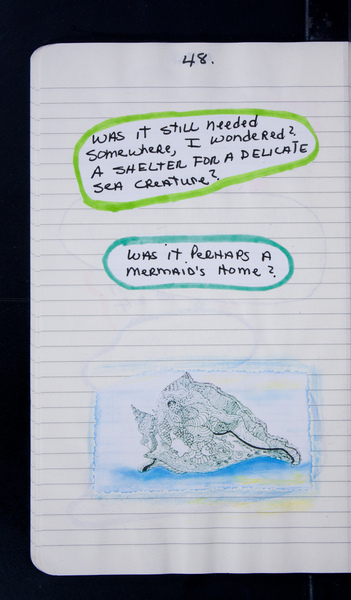 48.
WAS IT STILL needed
Somewhere, I wondered?
A SHELTER FOR A DELICATE
SEA CREATURE?
WAS IT PERHAPS A
MERMAID'S HOME?